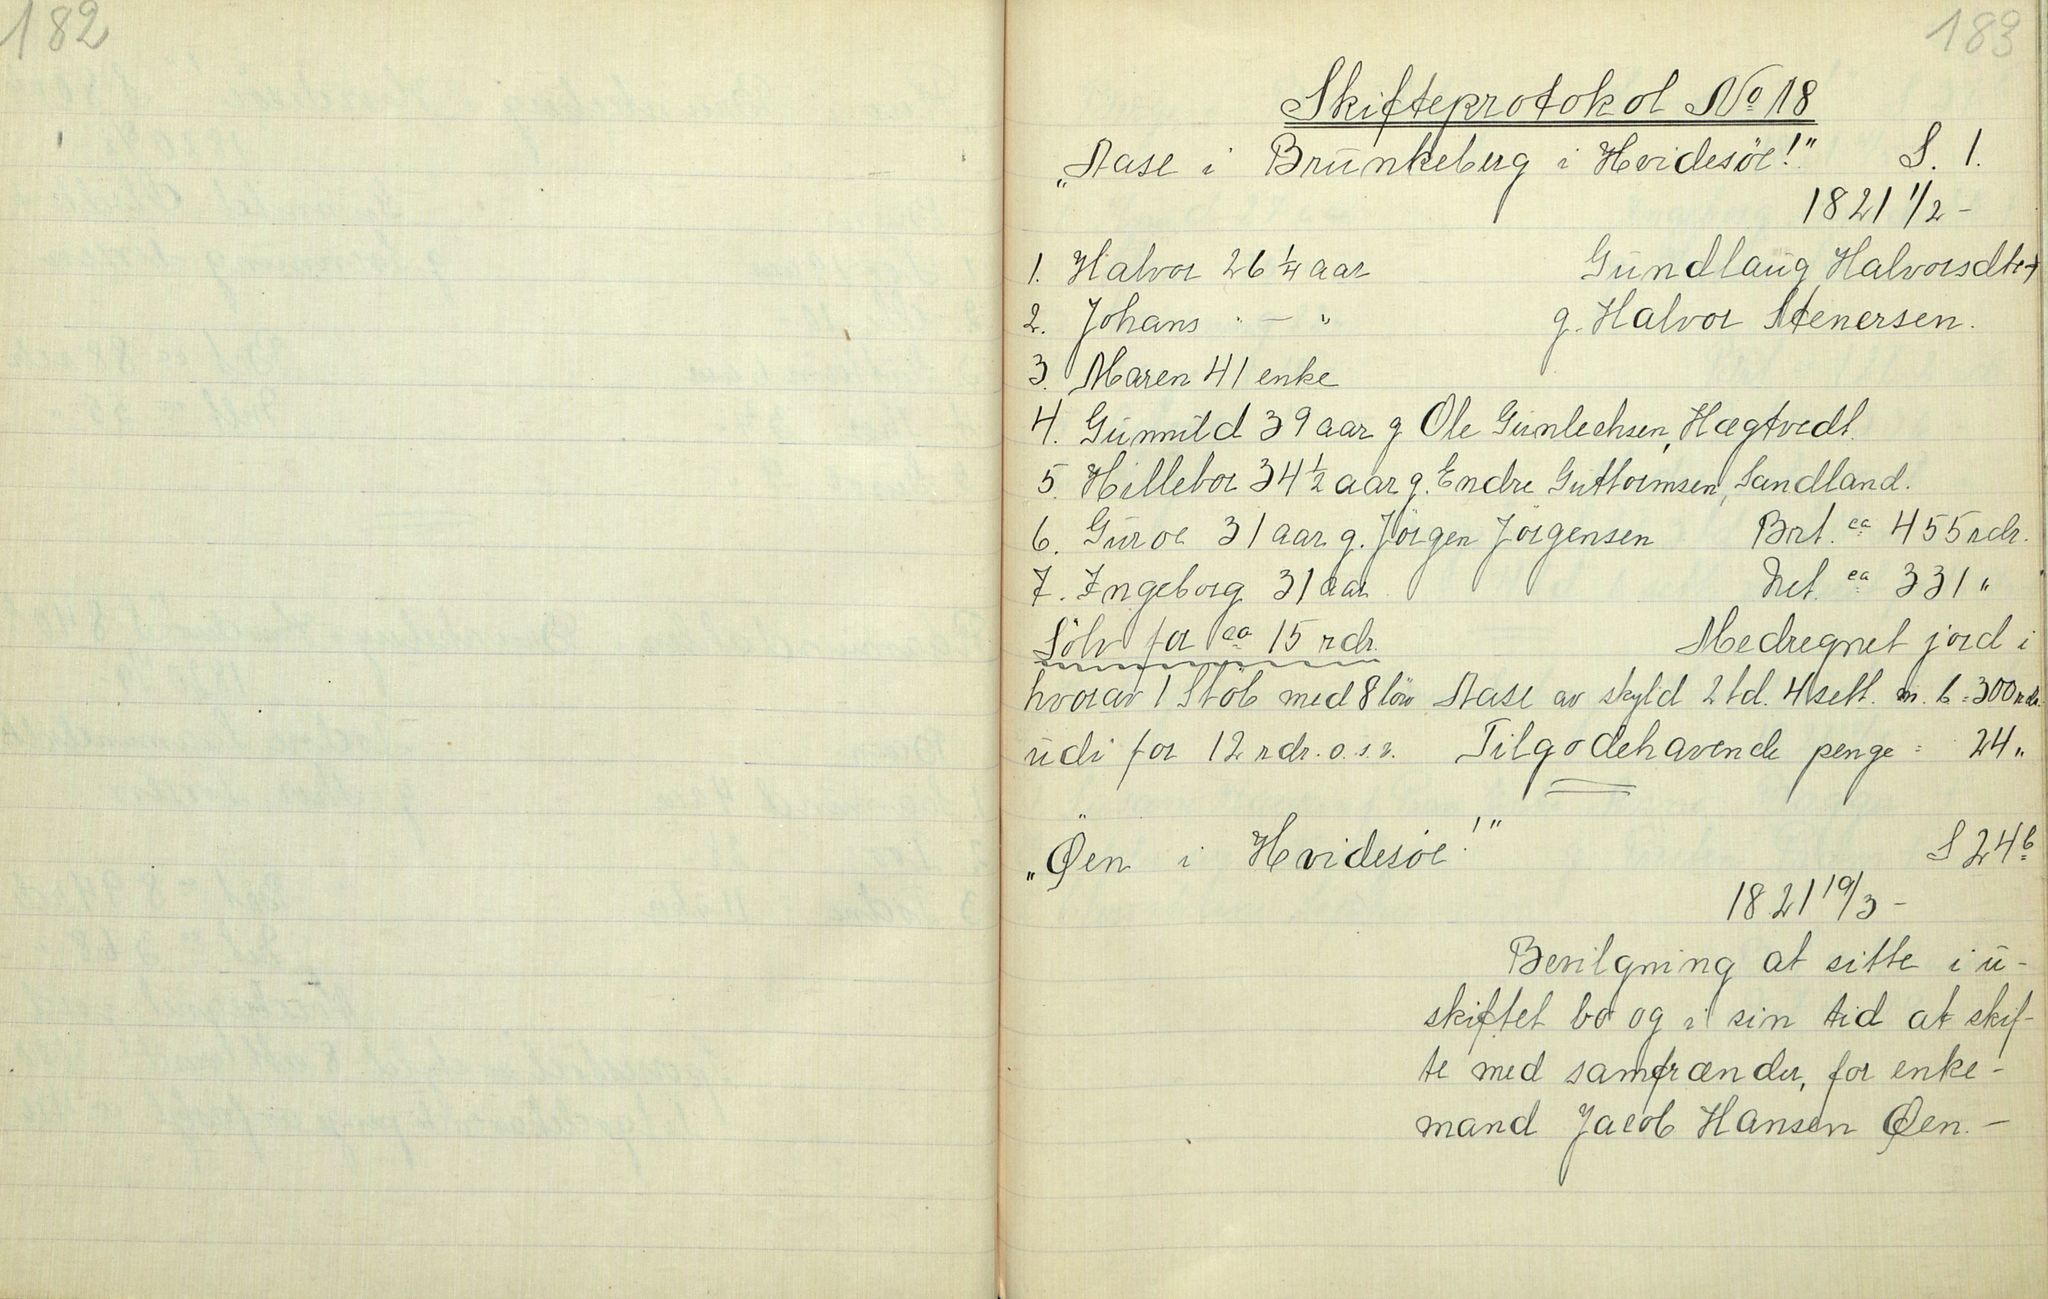 182
183
Skifteprotokol No 18
„Aase i Brunkeberg i Hvidesöe!" S. 1.
1821 1/2 –
1. Halvor 26 1/4 aar Gundlaug Halvorsdtr +
2. Johans " — " g. Halvor Stenersen.
3. Maren 41 enke
4. Gunnild 39 aar g Ole Gunlechsen, Hægtvedt.
5. Hillebor 34 1/2 aar g. Endre Guttormsen, Sandland.
6. Guroe 31 aar g. Jörgen Jörgensen Brt. ca 455 rdr.
7. Ingeborg 31 aar Net. ca 331 "
Sölv for ca 15 rdr. Medregnet jord i
hvorav 1 Stöb med 8 löv Aase av skyld 2 td. 4 sett. m. b = 300 rdr.
udi for 12 rdr. o.s.v. Tilgodehavende penge = 24 "
„Øen i Hvidesöe!" S 24 b
1821 19/3 –
Bevilgning at sitte i u-
skiftet bo og i sin tid at skif-
te med samfrænder, for enke-
mand Jacob Hansen Øen. –